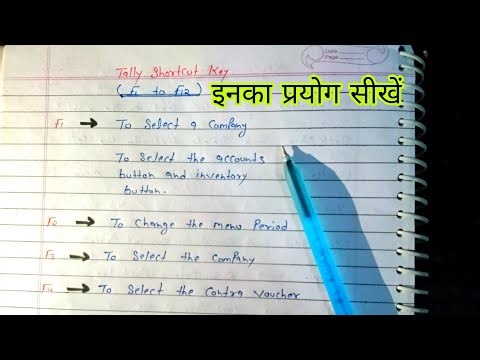 Tally Shortcut Key
(F1 to F12) इनका प्रयोग सीखें
F1 → To Select a Company
To Select the accounts
button and inventory
button.
F2 → To Change the menu Period
F3 → To Select the Company
F4 → To Select the Contra Voucher